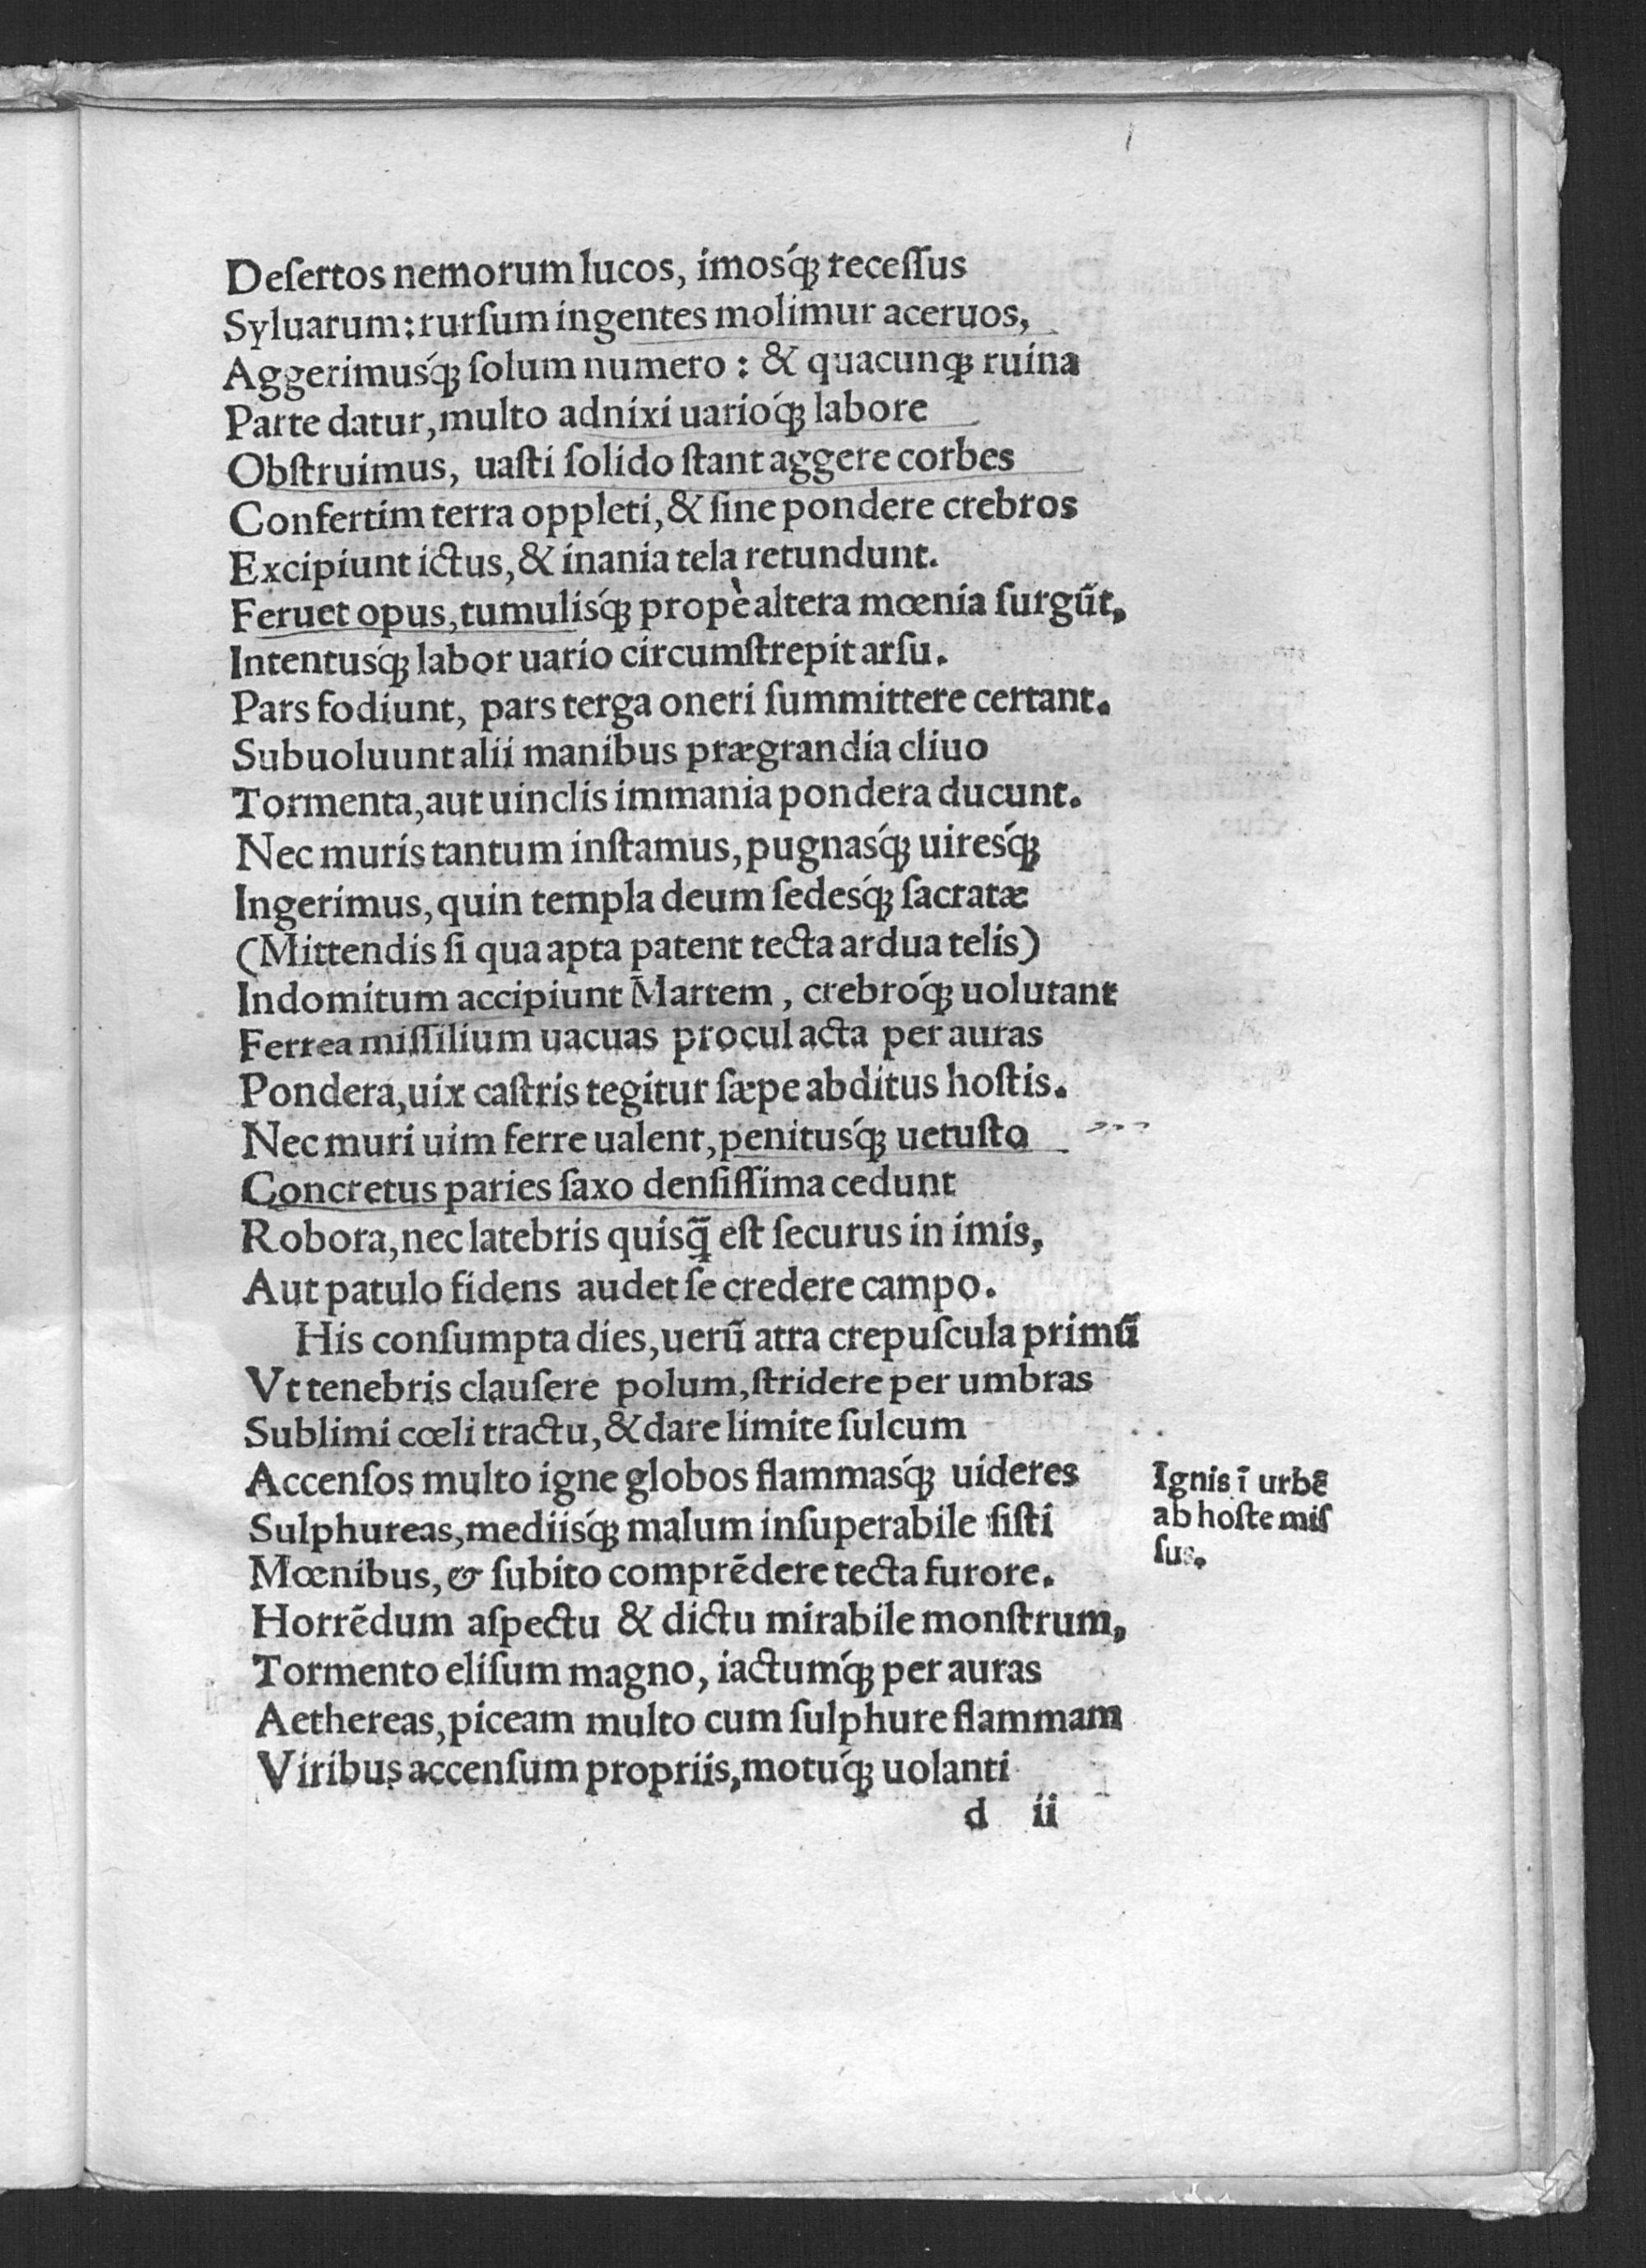 Deſertos nemorum lucos, imosq́ꝫ receſſus
Syluarum: rurſum ingentes molimur aceruos,
Aggerimusq́ꝫ ſolum numero: & quacunqꝫ ruina
Parte datur, multo adnixi uarioq́ꝫ labore
Obſtruimus, uaſti ſolido ſtant aggere corbes
Confertim terra oppleti, & ſine pondere crebros
Excipiunt ictus, & inania tela retundunt.
Feruet opus, tumulisq́ꝫ propè altera mœnia ſurgūt,
Intentusq́ꝫ labor uario circumſtrepit arſu.
Pars fodiunt, pars terga oneri ſummittere certant.
Subuoluunt alii manibus prægrandia cliuo
Tormenta, aut uinclis immania pondera ducunt.
Nec muris tantum inſtamus, pugnasq́ꝫ uiresq́ꝫ
Ingerimus, quin templa deum ſedesq́ꝫ ſacratæ
(Mittendis ſi qua apta patent tecta ardua telis)
Indomitum accipiunt Martem, crebroq́ꝫ uolutant
Ferrea miſſilium uacuas procul acta per auras
Pondera, uix caſtris tegitur ſæpe abditus hoſtis.
Nec muri uim ferre ualent, penitusq́ꝫ uetuſto
Concretus paries ſaxo denſiſſima cedunt
Robora, nec latebris quisq̄ eſt ſecurus in imis,
Aut patulo fidens audet ſe credere campo.
His conſumpta dies, uerū atra crepuſcula primū
Vt tenebris clauſere polum, ſtridere per umbras
Sublimi cœli tractu, & dare limite ſulcum
Accenſos multo igne globos flammasq́ꝫ uideres
Sulphureas, mediisq́ꝫ malum inſuperabile ſiſti
Mœnibus, & ſubito comprēdere tecta furore.
Horrēdum aſpectu & dictu mirabile monſtrum,
Tormento eliſum magno, iactumq́ꝫ per auras
Aethereas, piceam multo cum ſulphure flammam
Viribus accenſum propriis, motuq́ꝫ uolanti
d ii
Ignis ī urbē
ab hoſte miſ
ſus.